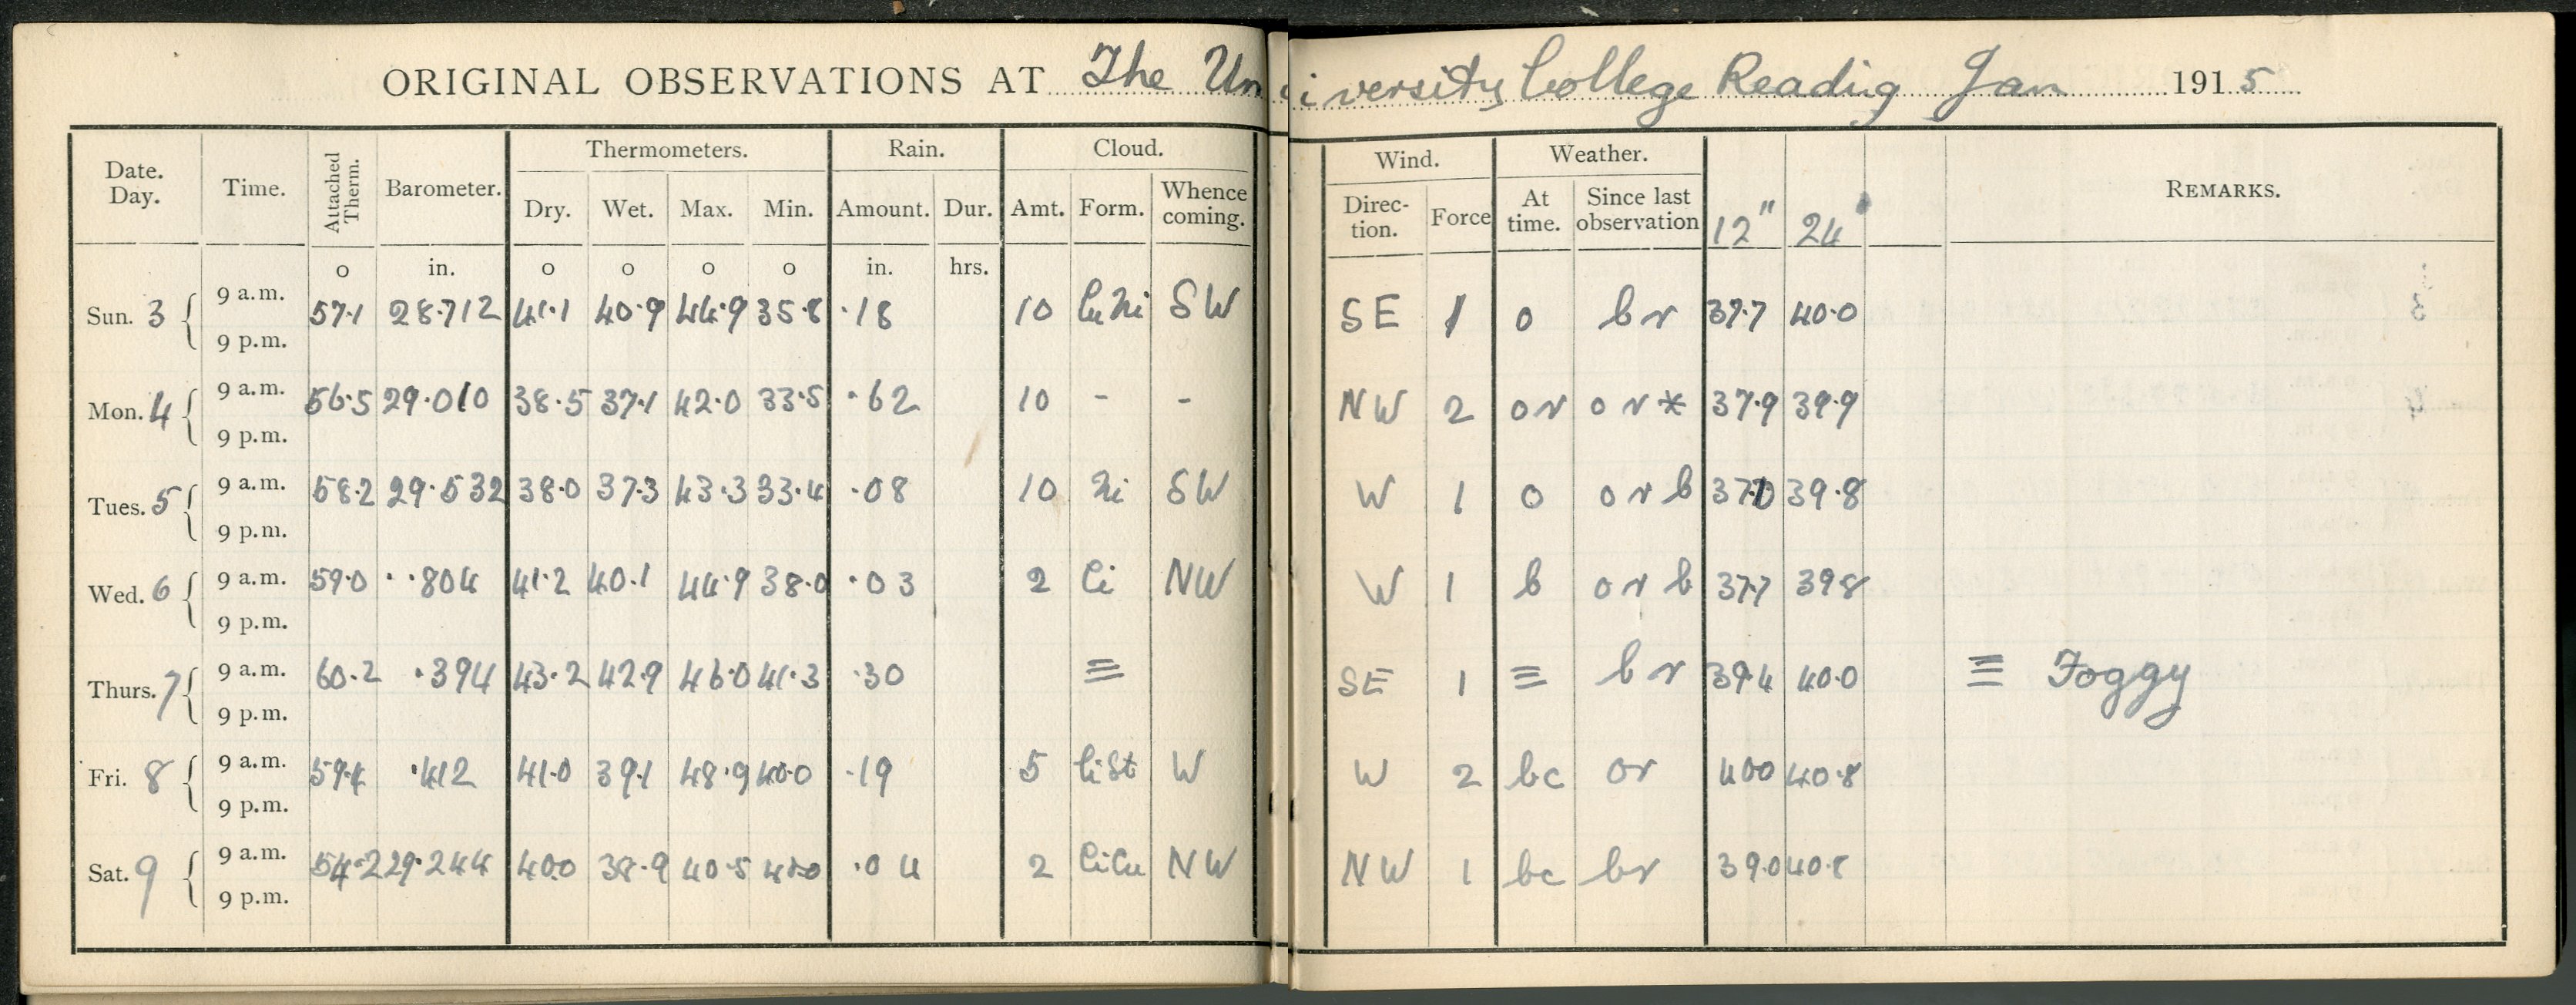 ORIGINAL OBSERVATIONS AT The University College Reading Jan 1915
Date. Day. Time. Attached Therm. Barometer. Thermometers. Dry. Wet. Max. Min. Rain. Amount. Dur. Cloud. Amt. Form. Whence coming. Wind. Direction. Force Weather. At time. Since last observation 12" 24 REMARKS.
o in. o o o o in. hrs.
Sun. 3 9 a.m. 57.1 28.712 41.1 40.9 44.9 35.8 .18 10 CuNi SW SE 1 o b r 37.7 40.0
9 p.m.
Mon. 4 9 a.m. 56.5 29.010 38.5 37.1 42.0 33.5 .62 10 - - NW 2 o r o r * 37.9 39.9
9 p.m.
Tues. 5 9 a.m. 58.2 29.532 38.0 37.3 43.3 33.4 .08 10 Ni SW W 1 o o r b 37.0 39.8
9 p.m.
Wed. 6 9 a.m. 59.0 .804 41.2 40.1 44.9 38.0 .03 2 Ci NW W 1 b o r b 37.7 39.8
9 p.m.
Thurs. 7 9 a.m. 60.2 .394 43.2 42.9 46.0 41.3 .30 ≡ SE 1 ≡ b r 39.4 40.0 ≡ Foggy
9 p.m.
Fri. 8 9 a.m. 59.4 .412 41.0 39.1 48.9 40.0 .19 5 CiSt W W 2 bc or 40.0 40.8
9 p.m.
Sat. 9 9 a.m. 54.2 29.244 40.0 38.9 40.5 .04 2 CiCu NW NW 1 bc br 39.0 40.8
9 p.m.